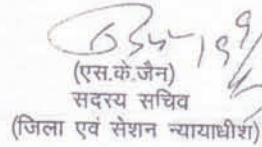 (एस.के.जैन)
सदस्य सचिव
(जिला एवं सेशन न्यायाधीश)